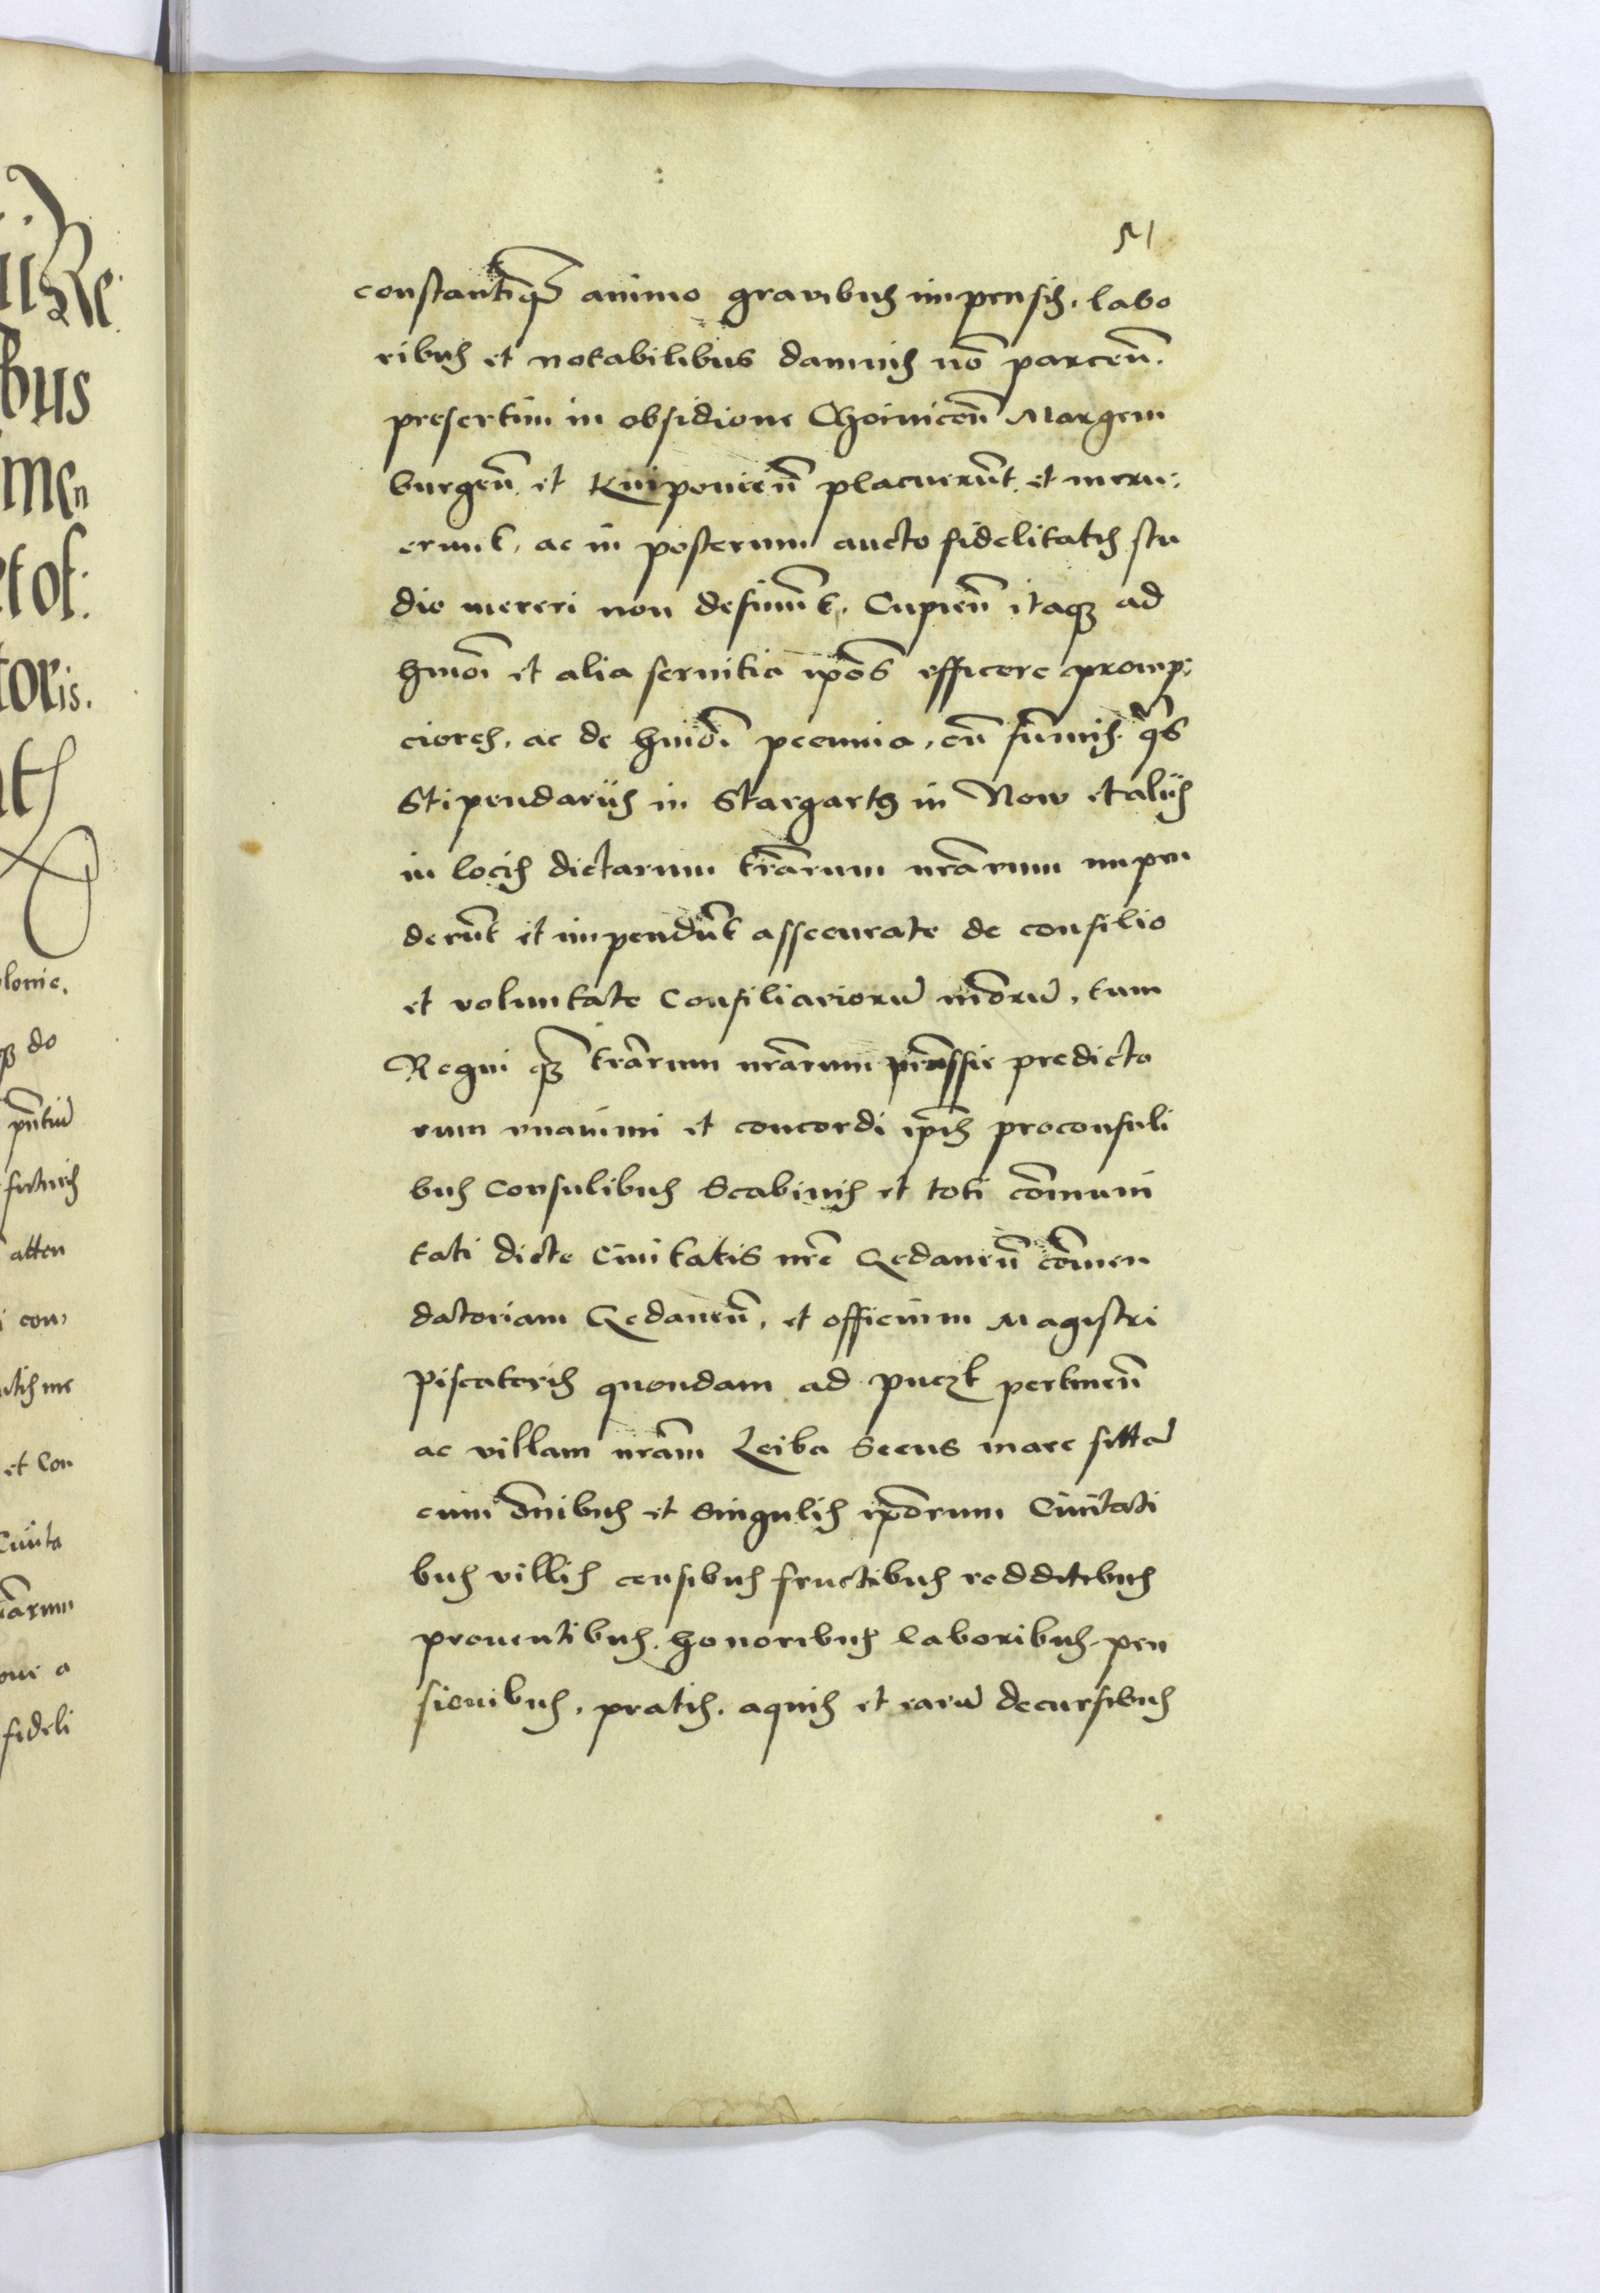 constantiqȝ animo gravibus impensis, labo
ribus et notabilibus damnis nō parceñ.
presertim in obsidione Choiniceñ Margem
burgeñ et Knipovieñ placuerūt et meru:
erunt, ac in posterum aucto fidelitatis stu
dio mereri non desinūt. Cupieñ itaqȝ ad
hmōi et alia servitia ip̄os efficere promp:
ciores, ac de hmōi pecunia, cū sūmis q̄s
Stipendariis in Stargartg in Now et aliis
in locis dictarum tr̄arum nr̄arum impen
derūt et impendūt assecurate de consilio
et voluntate Consiliariorū nr̄orū, tam
Regni qȝ tr̄arum nr̄arum prussie predicto
rum unanimi et concordi ip̄is proconsuli
bus Consulibus Scabinis et toti cōmuni
tati dicte Civitatis nr̄e Gedaneñ cōmen
datoriam Gedaneñ, et officium Magistri
Piscatoris quondam ad puczk pertineñ
ac villam nr̄am Leiba Secus mare sittā
cum ōnibus et Singulis ip̄orum Civitati
bus villis censibus fructibus redditibus
proventibus, honoribus laboribus, pen
sionibus, pratis, aquis et earū decursibus